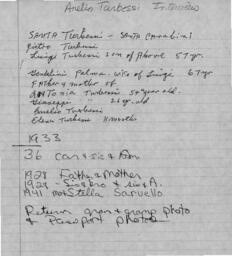 Anelio Turbessi Interview
SANTA Turbessi - SANTA Carabini
Pietro Turbessi
Luigi Turbessi son of Above 57 yr.
Palma, wife of Luigi 67 yr
FATHER & mother of
ANTonia Turbessi 54 year old.
Giuseppi " 21 yr. old
Amelio Turbessi
Elena Turbessi
1933
36 can & sie &
1928 Father & Mother
1929 - Sis & bro & sis A.
1941 Stella Saruello
Return gran & gramp photo
& Passport photos